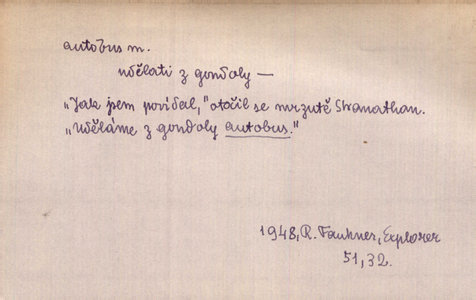 autobus m.
udělati z gondoly —
„Jak jsem povídal," otočil se mrzutě Stranathan.
„Uděláme z gondoly autobus."
1948, R. Faukner, Explorer
51, 32.